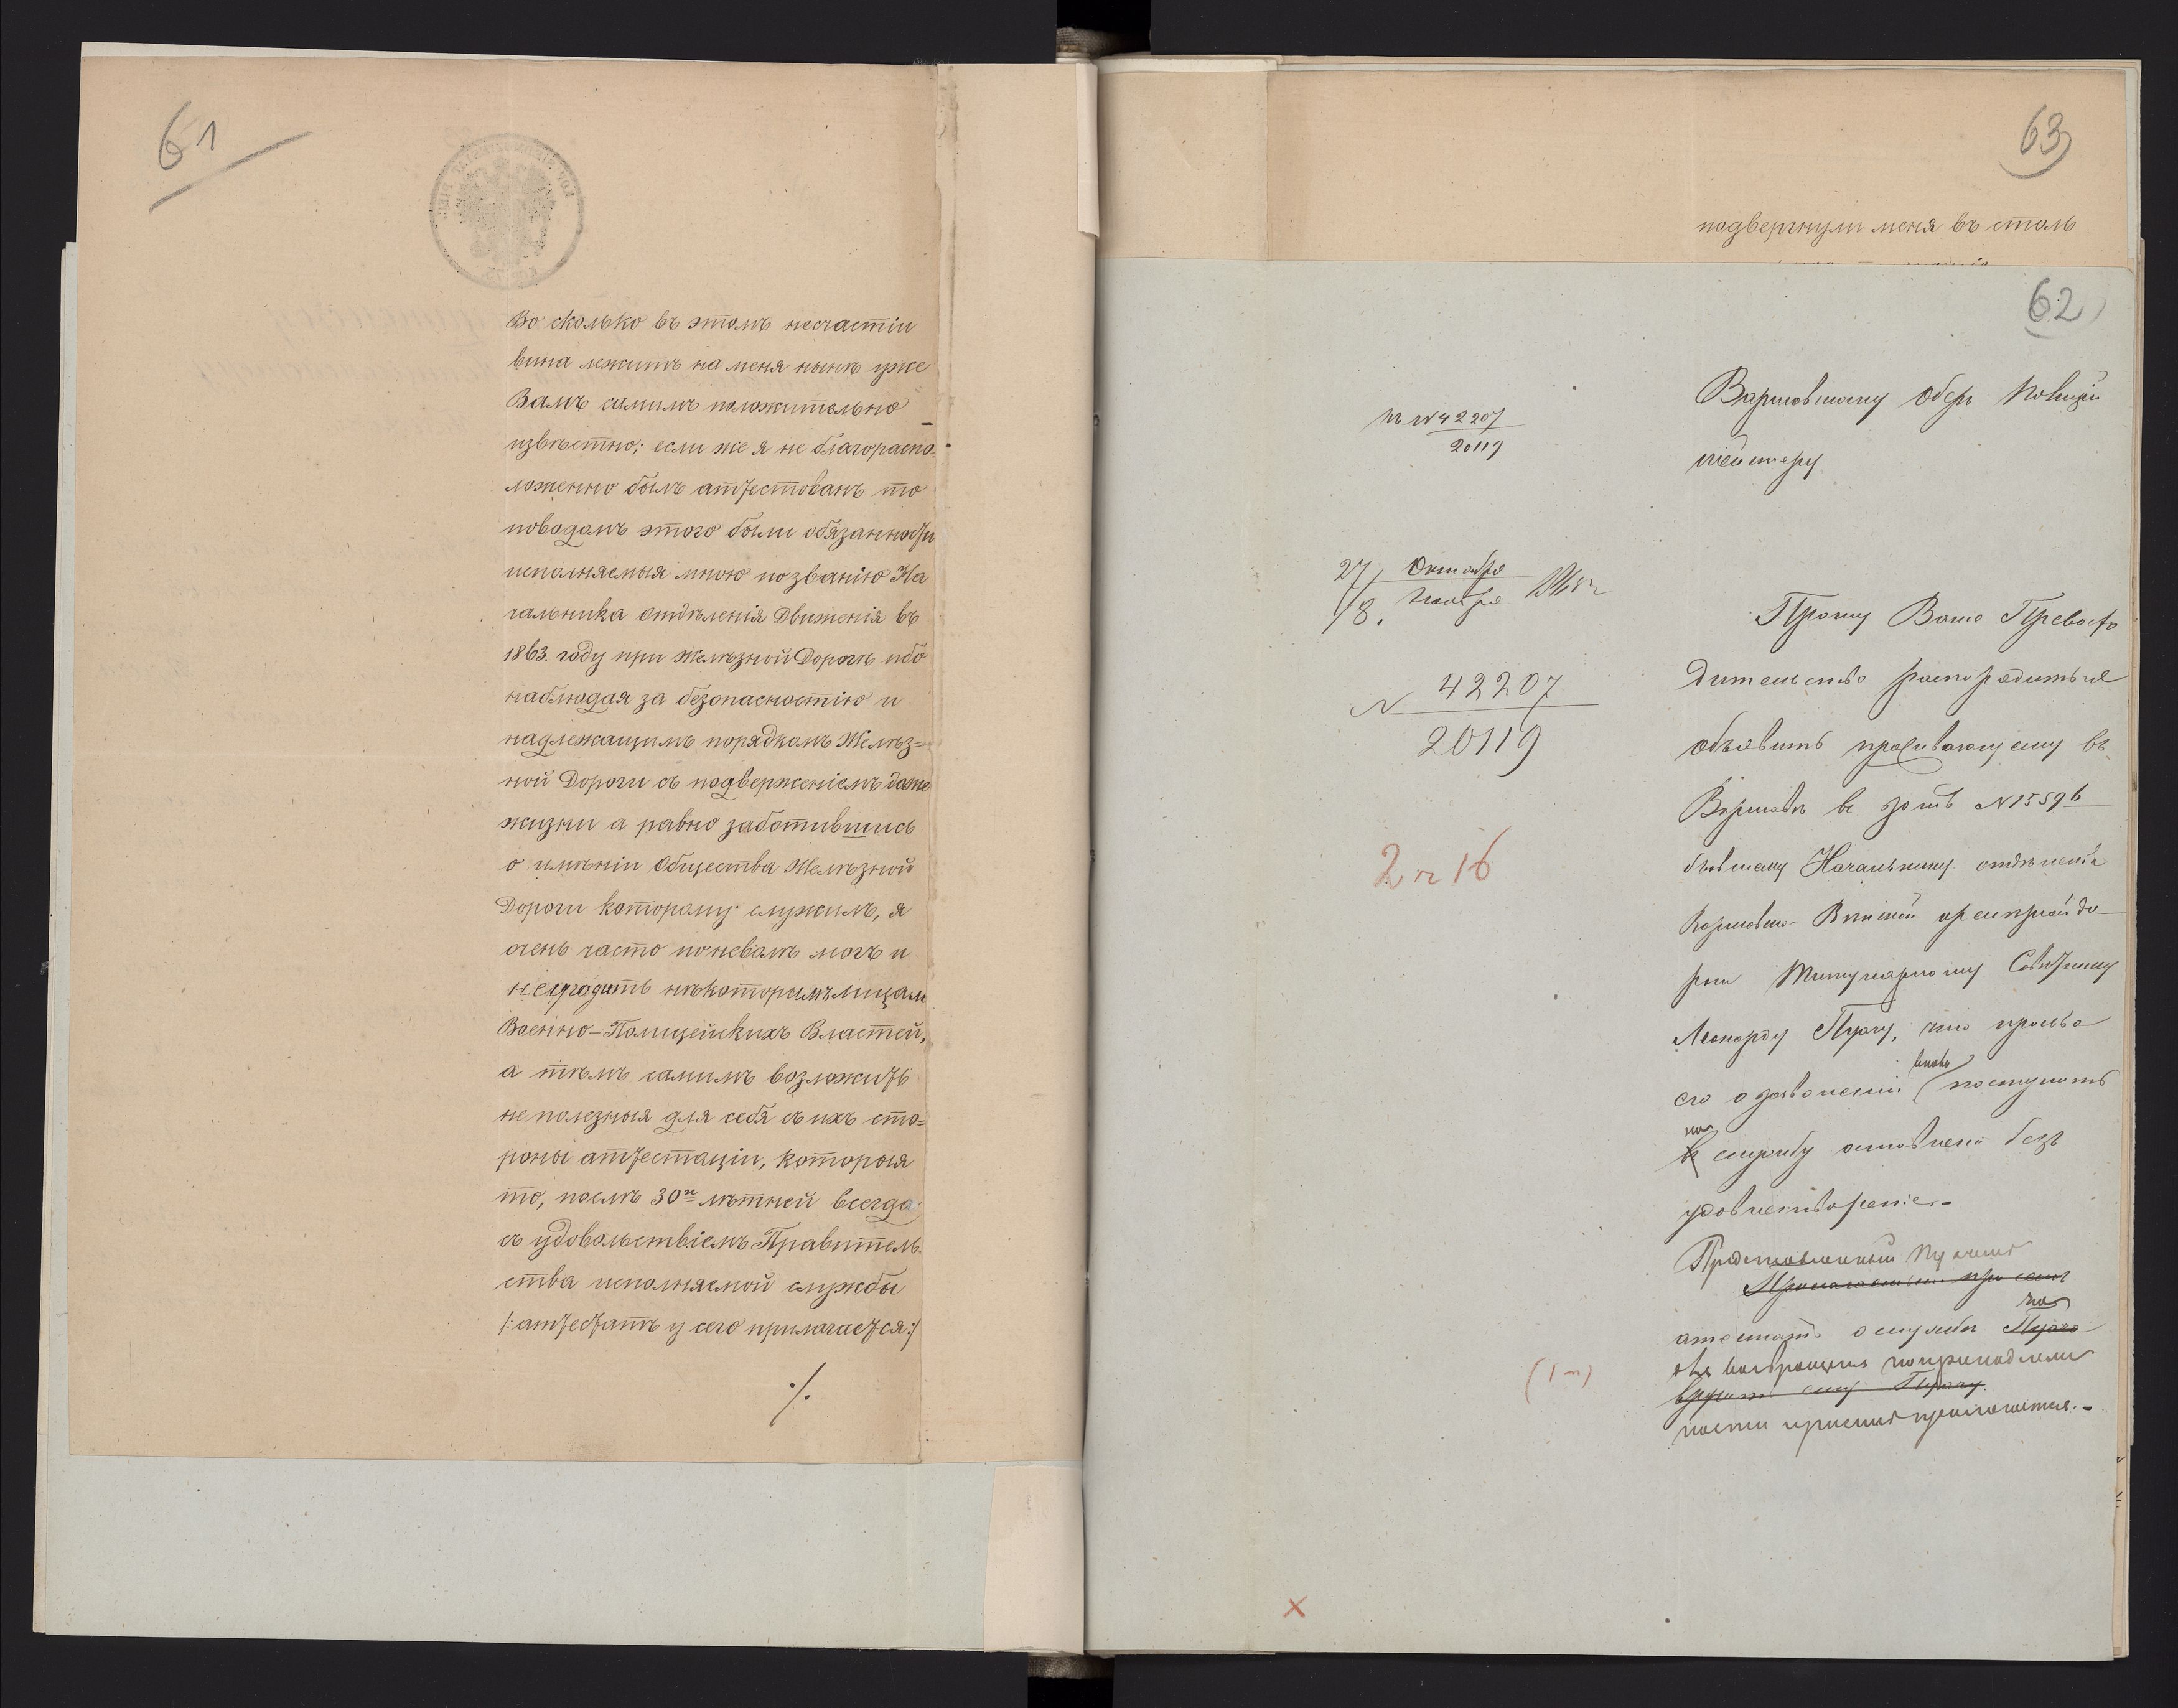 61
Во сколько въ этомъ несчастіи
вина лежитъ на меня нынѣ уже
Вамъ самимъ положительно
извѣстно; если же я не благораспо-
ложенно былъ аттестованъ то
поводомъ этого были обязанности
исполняемыя мною по званію На
чальника Отдѣленія Движенія въ
1863. году при Желѣзной Дорогѣ ибо
наблюдая за безопасностію и
надлежащимъ порядкомъ Желѣз=
ной Дороги съ подверженіемъ даже
жизни а равно заботившись
о имѣніи Общества Желѣзной
Дороги которому служилъ, я
очень часто поневолѣ могъ и
неугодить нѣкоторымъ лицам
Военно-Полицейскихъ Властей,
а тѣмъ самимъ возложить
не полезныя для себя съ ихъ сто=
роны аттестаціи, которыя
то, послѣ 30и лѣтней всегда
съ удовольствіемъ Правитель
ства исполняемой службы
/: аттестатъ у сего прилагается :/
./.
63
подвергнули меня въ столь
62
Варшавскому Оберъ Полицій
мейстеру
къ N 42207
20119
27 Октября
/8. Ноября 1865 г
N 42207
20119
2 ч 16
Прошу Ваше Превосхо
дительство распорядиться
объявить проживающему въ
Варшавѣ въ домѣ N 1559 b
бывшему Начальнику отдѣленія
Варшавско-Вѣнской желѣзной до-
роги Титулярному Совѣтнику
Леонарду Пузгу, что просьба
его о дозволеніи вновь поступить
на
въ службу оставлена безъ
удовлетворенія.-
Представленный
Прилагаемый при семъ
аттестатъ о службѣ его
для возвращенія по принадлеж
вручить ему
ности при семъ прилагается.-
(1 л)
x